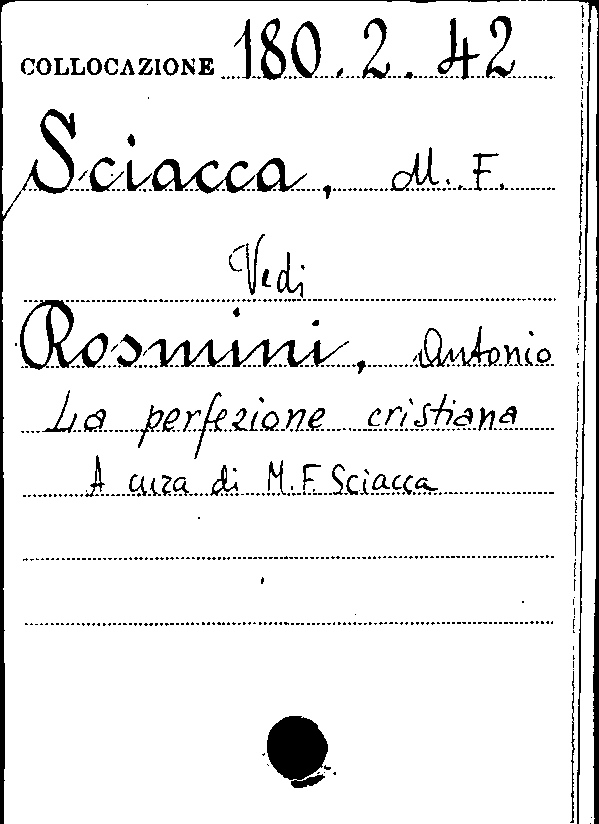 COLLOCAZIONE 180.2.42
Sciacca, M. F.
Vedi
Rosmini, Antonio
La perfezione cristiana
A cura di M. F. Sciacca